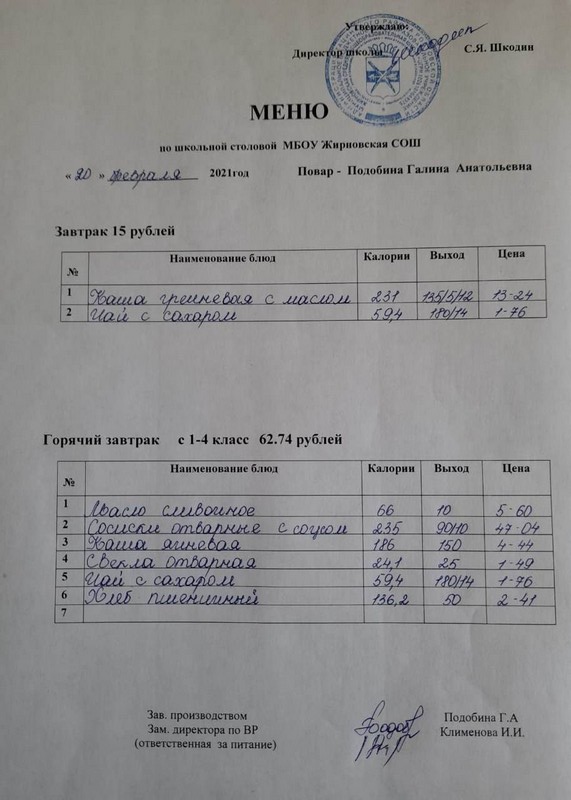 Утверждаю:
Директор школы С.Я. Шкодин
МЕНЮ
по школьной столовой МБОУ Жирновская СОШ
« 20 » февраля 2021год Повар - Подобина Галина Анатольевна
Завтрак 15 рублей
№ Наименование блюд Калории Выход Цена
1 Каша гречневая с маслом 231 135/5/12 13-24
2 Чай с сахаром 59,4 180/14 1-76
Горячий завтрак с 1-4 класс 62.74 рублей
№ Наименование блюд Калории Выход Цена
1 Масло сливочное 66 10 5-60
2 Сосиски отварные с соусом 235 90/10 47-04
3 Каша ячневая 186 150 4-44
4 Свекла отварная 24,1 25 1-49
5 Чай с сахаром 59,4 180/14 1-76
6 Хлеб пшеничный 136,2 50 2-41
7
Зав. производством Подобина Г.А
Зам. директора по ВР Клименова И.И.
(ответственная за питание)